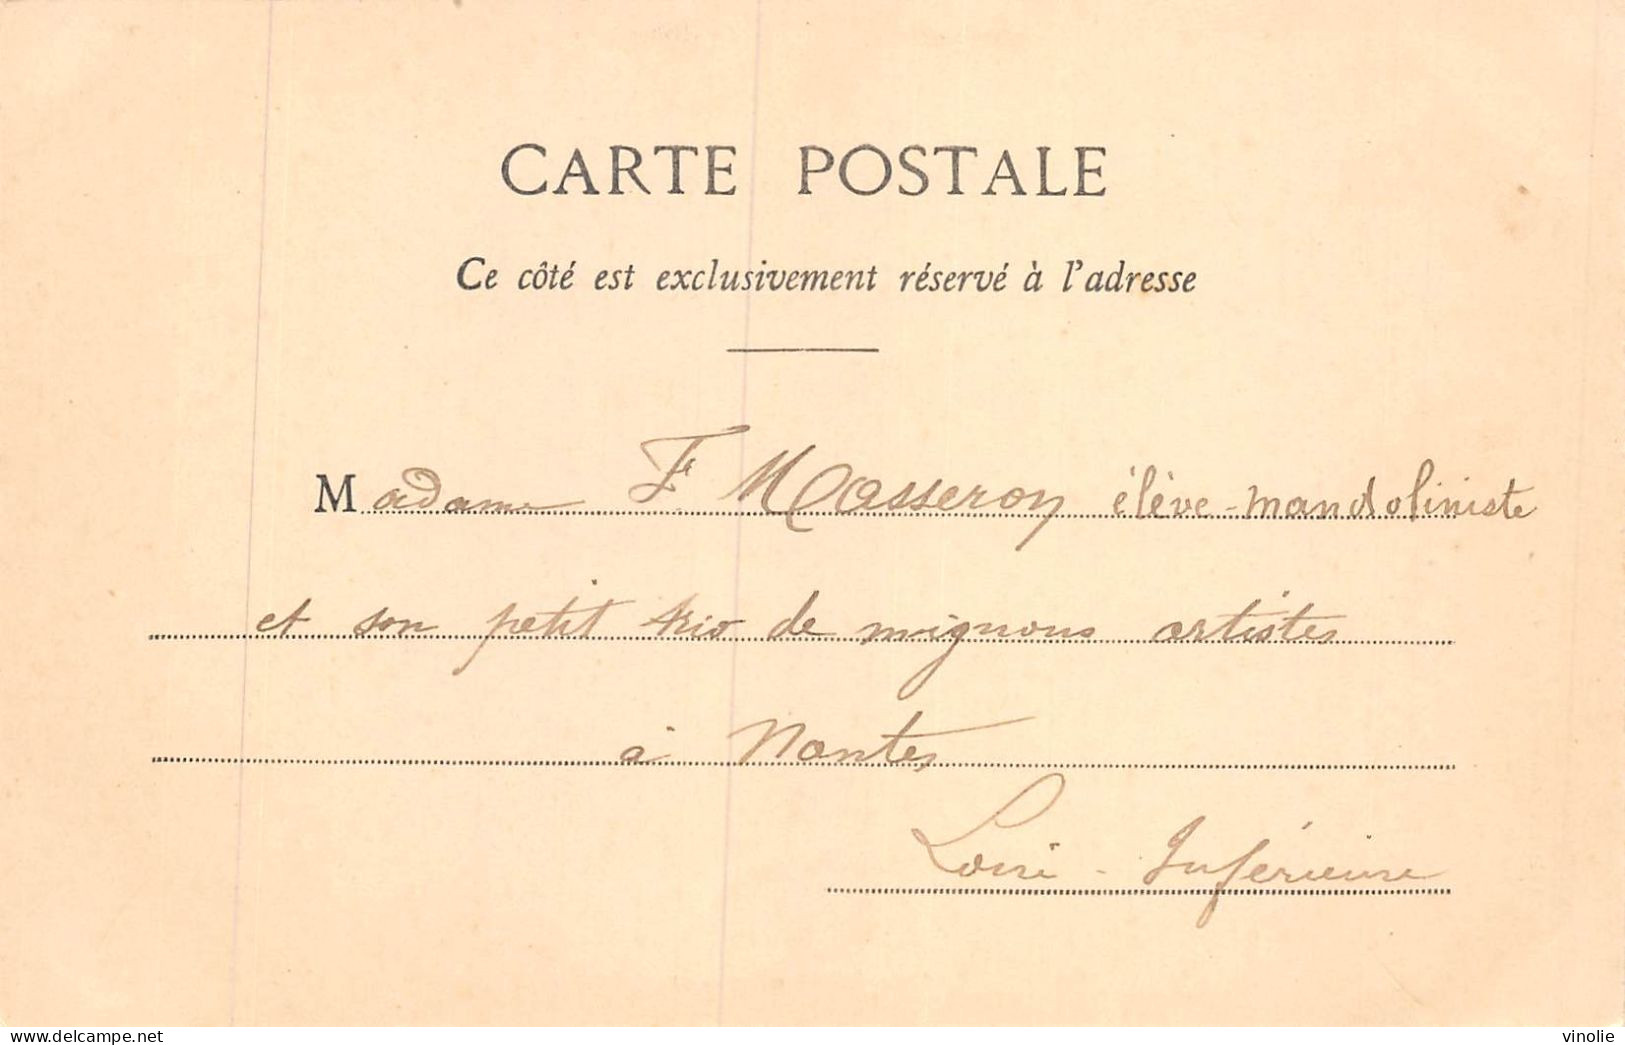 CARTE POSTALE
Ce côté est exclusivement réservé à l'adresse
Madame F. Masseron élève-mandoliniste
et son petit trio de mignons artistes
à Nantes
Loire-Inférieure
www.delcampe.net
vinolie